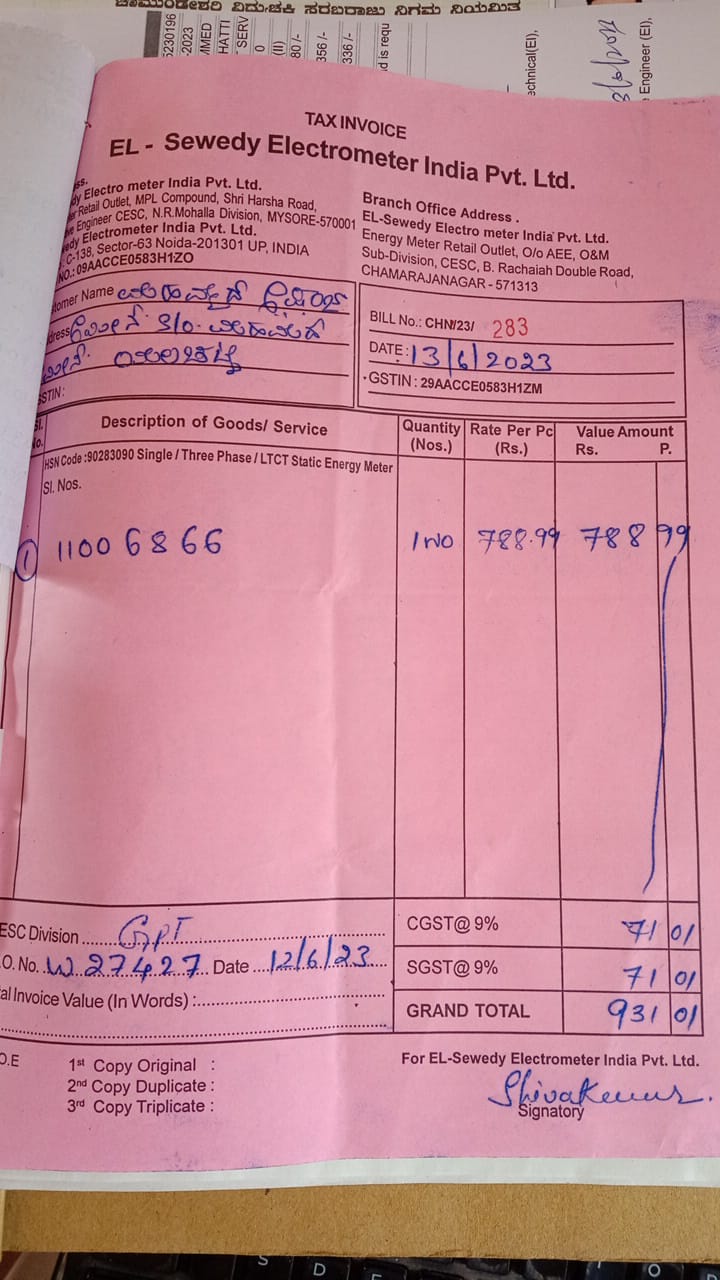 5230196
-2023
MMED
HATTI
SERV
0
(II)
80 /-
356 /-
336 /-
d is requ
echnical(EI),
Engineer (EI),
TAX INVOICE
EL - Sewedy Electrometer India Pvt. Ltd.
ss.
dy Electro meter India Pvt. Ltd.
er Retail Outlet, MPL Compound, Shri Harsha Road,
ve Engineer CESC, N.R.Mohalla Division, MYSORE-570001
wedy Electrometer India Pvt. Ltd.
C-138, Sector-63 Noida-201301 UP, INDIA
NO.: 09AACCE0583H1ZO
Branch Office Address .
EL-Sewedy Electro meter India Pvt. Ltd.
Energy Meter Retail Outlet, O/o AEE, O&M
Sub-Division, CESC, B. Rachaiah Double Road,
CHAMARAJANAGAR - 571313
stomer Name
dress
GSTIN :
BILL No.: CHN/23/ 283
DATE: 13/6/2023
GSTIN : 29AACCE0583H1ZM
Sl. No. Description of Goods/ Service Quantity (Nos.) Rate Per Pc (Rs.) Value Amount Rs. P.
HSN Code :90283090 Single / Three Phase / LTCT Static Energy Meter
Sl. Nos.
1 11006866 1 NO 788.99 788 99
ESC Division GPT CGST@ 9% 71 01
O. No. W 27427 Date 12/6/23 SGST@ 9% 71 01
al Invoice Value (In Words) : GRAND TOTAL 931 01
O.E
1st Copy Original :
2nd Copy Duplicate :
3rd Copy Triplicate :
For EL-Sewedy Electrometer India Pvt. Ltd.
Shivakumar
Signatory
S D